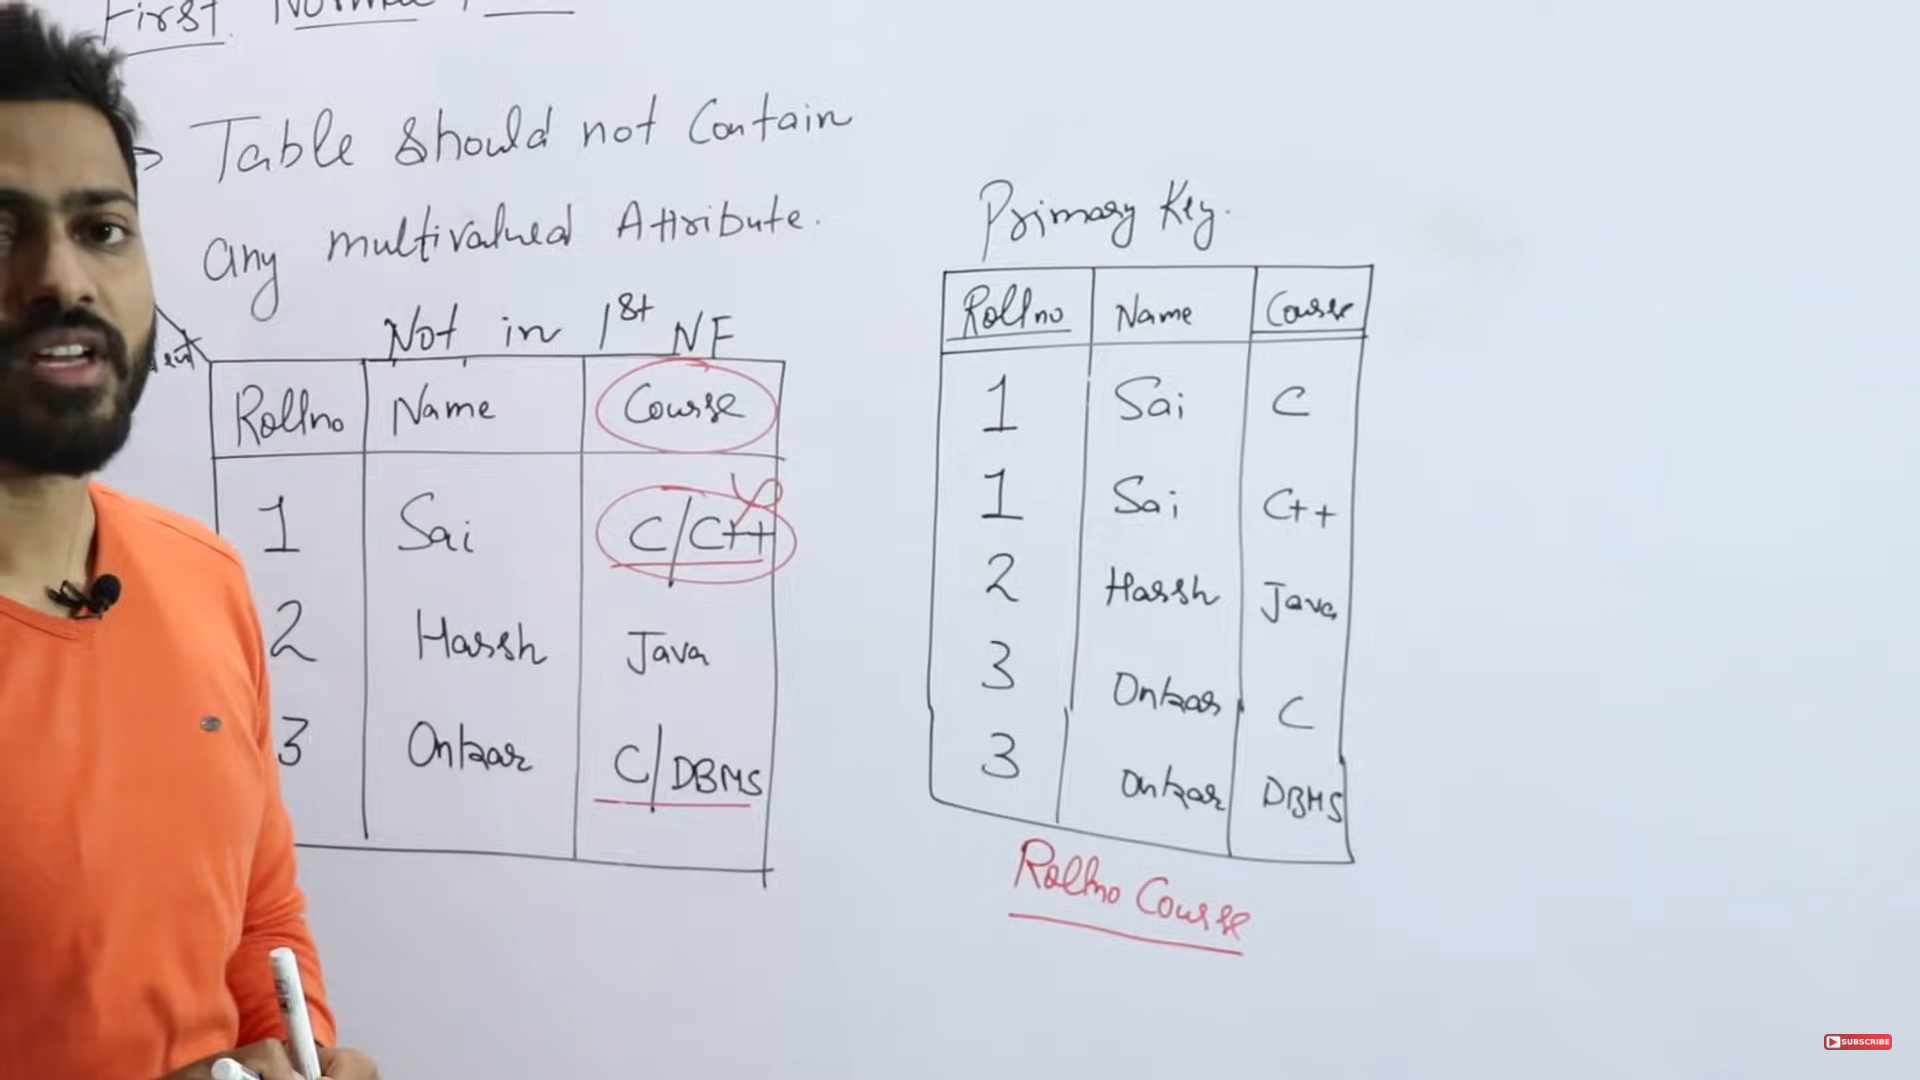 First Normal
Table should not contain
any multivalued Attribute.
Not in 1st NF
Rollno Name Course
1 Sai C/C++
2 Harsh Java
3 Onkar C/DBMS
Primary Key.
Rollno Name Course
1 Sai C
1 Sai C++
2 Harsh Java
3 Onkar C
3 Onkar DBMS
Rollno Course
SUBSCRIBE